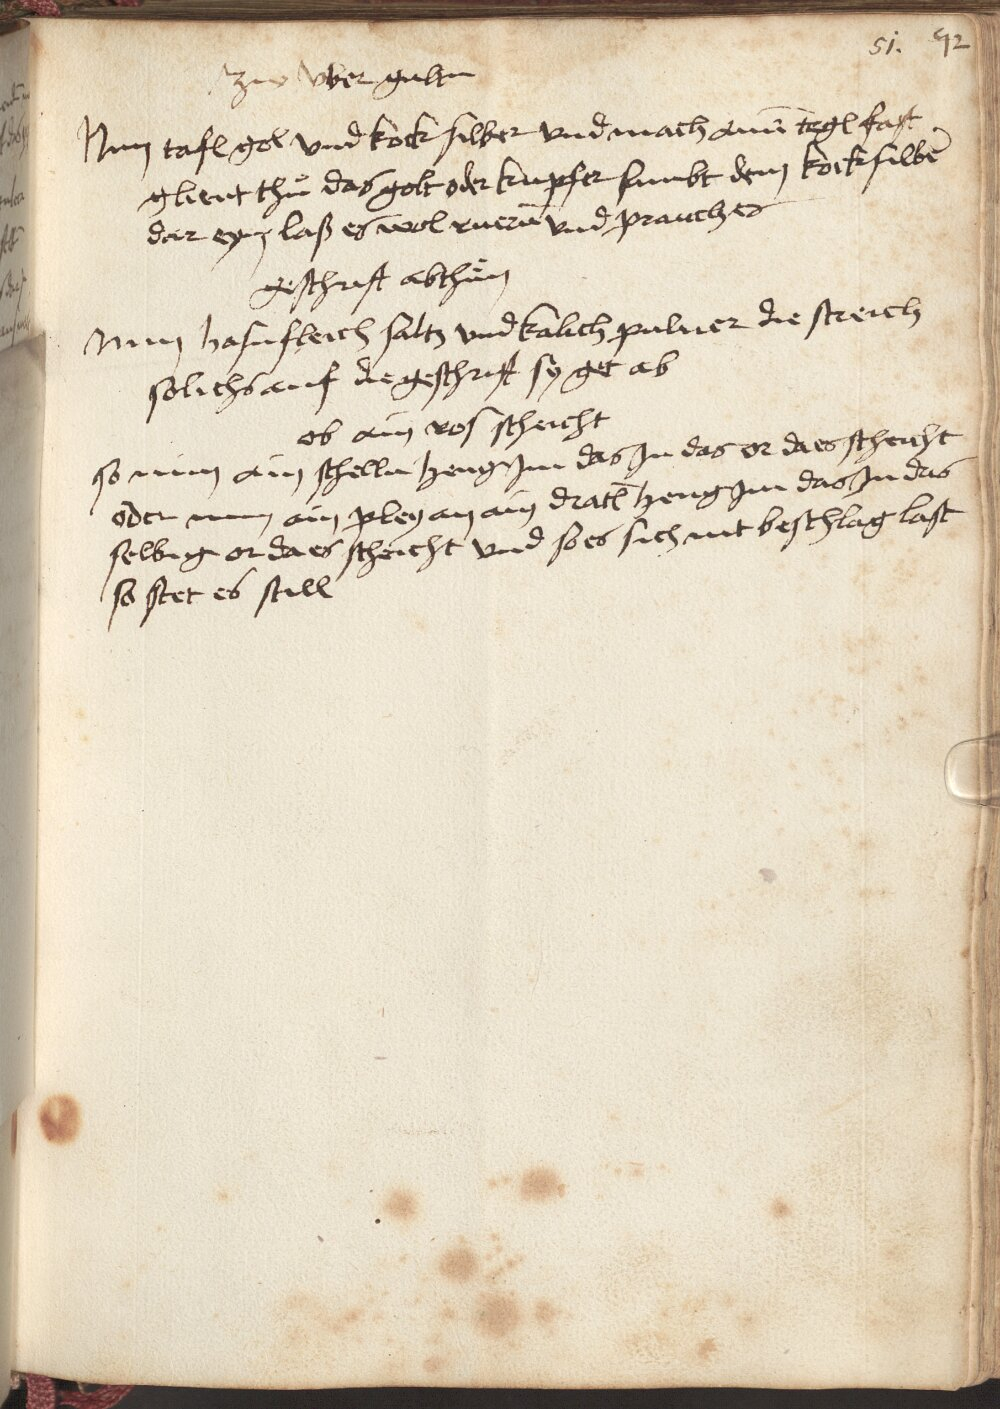 51. 92
Zuo vber gulten
Nim tafl gol vnd kock silber vnd mach ainē tegl fast
glient thů das golt oder kupfer sambt dem kocksilbē
dar eyn laß es wol ruerñ vnd prauch es
geschrift abthůn
Nim hasnfleich saltz vnd kalich puluer die streich
solichs auf die geschrift sy get ab
ob ain ros scheicht
so nim ain schelln heng Im das In das or da es scheicht
oder nim ain pley an ain dratl heng Im das In das
selbig or da es scheicht vnd so es sich nit beschlag last
so stet es still